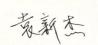 袁新杰